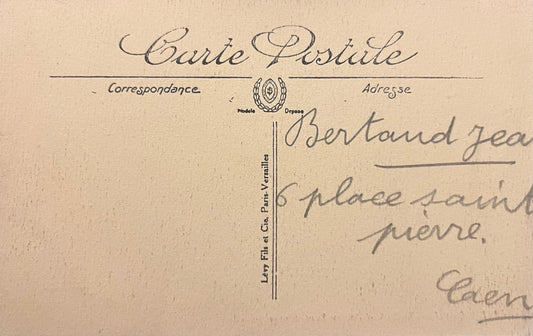 Carte Postale
Correspondance
Adresse
Modèle Déposé
Lévy Fils et Cie, Paris-Versailles
Bertaud Jea
6 place saint
pièrre.
Caen